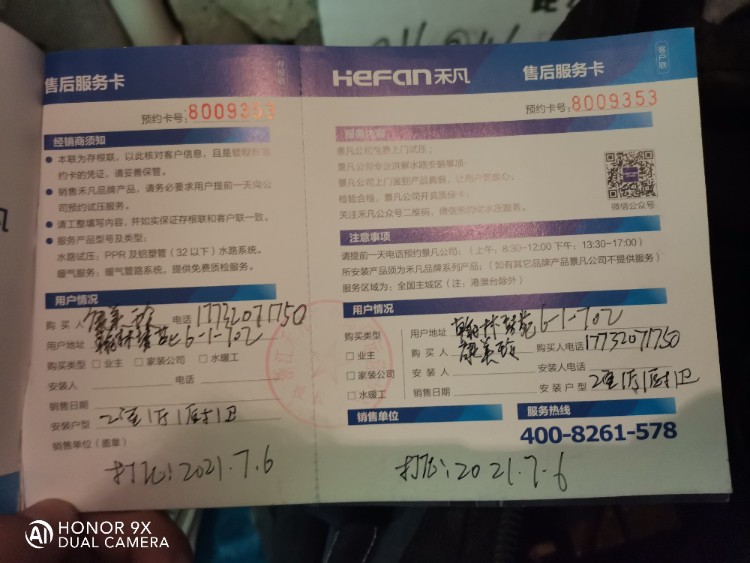 售后服务卡
预约卡号:8009353
经销商须知
本联为存根联，以此核对客户信息，且是领取预
约卡的凭证，请妥善保管。
销售禾凡品牌产品，请务必要求用户提前一天向公
司预约试压服务。
请工整填写内容，并如实保证存根联和客户联一致。
服务产品型号及类型:
水路试压：PPR及铝塑管（32以下）水路系统。
暖气服务：暖气管路系统，提供免费质检服务。
用户情况
购买人 电话 17732071750
用户地址 翰林 6-1-702
购买类型 □业主 □家装公司 □水暖工
安装人 电话
销售日期
安装户型 2室1厅1厨1卫
销售单位（盖章）
打压:2021.7.6
HeFan禾凡 售后服务卡
客户联
预约卡号:8009353
服务内容
景凡公司免费上门试压;
检验合格，景凡公司开具质保卡;
微信公众号
注意事项
请提前一天电话预约景凡公司:（上午: 8:30-12:00 下午: 13:30-17:00）
所安装产品须为禾凡品牌系列产品;（如有其它品牌产品景凡公司不提供服务）
服务区域为：全国主城区（注：港澳台除外）
用户情况
购买类型 用户地址 翰林 6-1-702
□业主 购买人 购买人电话 17732071750
□家装公司 安装人 安装人电话
□水暖工 销售日期 安装户型 2室1厅1厨1卫
销售单位 服务热线
400-8261-578
打压:2021.7.6
HONOR 9X
DUAL CAMERA